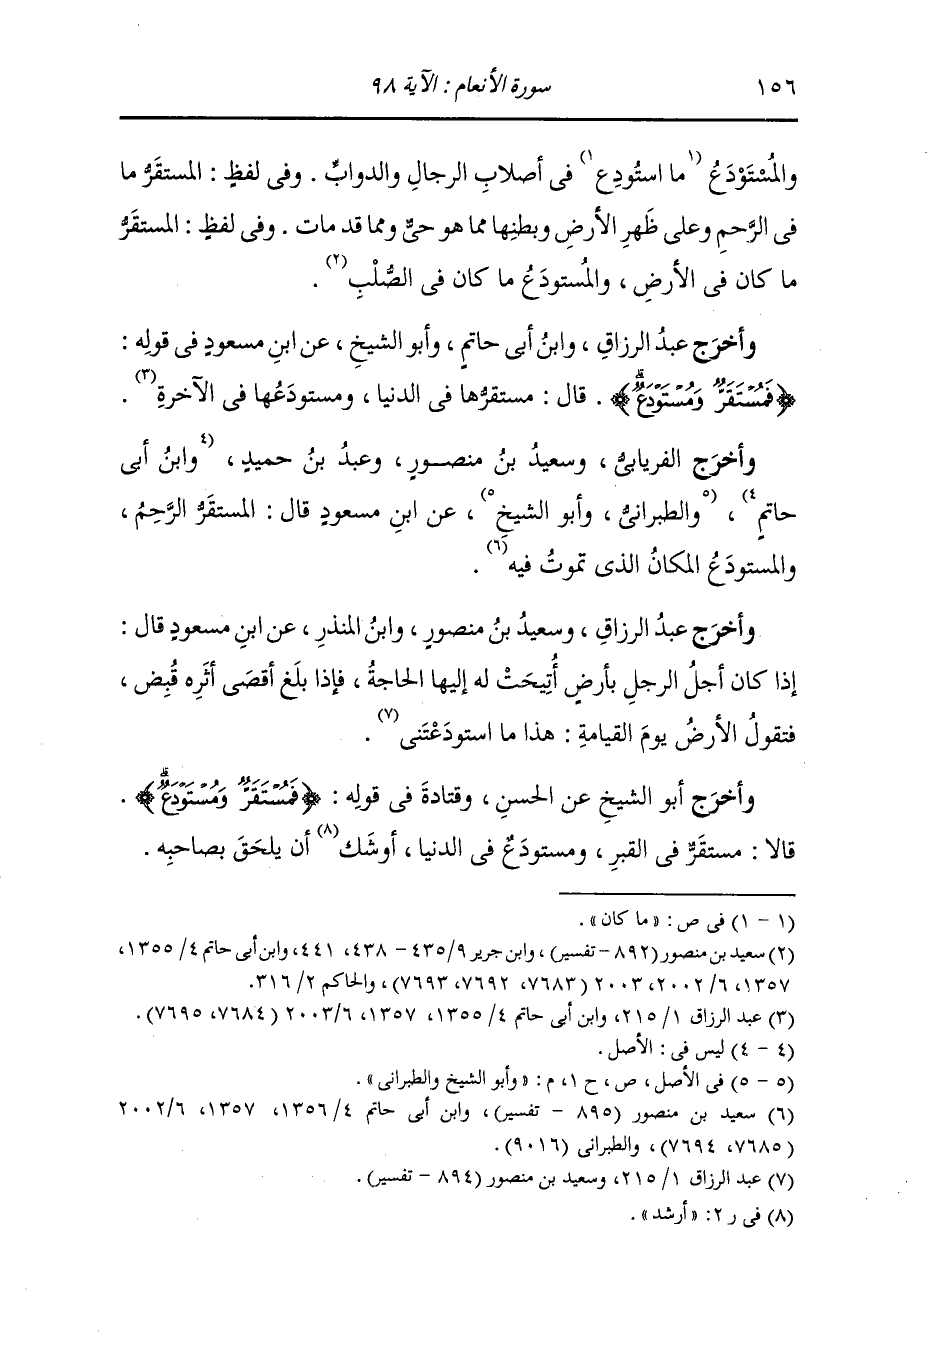 ١٥٦
سورة الأنعام : الآية ٩٨
والمُسْتَوْدَعُ (١ ما استُودِع ١) فى أصلابِ الرجالِ والدوابِّ . وفى لفظٍ : المستقَرُّ ما
فى الرَّحِمِ وعلى ظَهرِ الأرضِ وبطنِها مما هو حىٌّ ومما قد مات . وفى لفظٍ : المستقَرُّ
ما كان فى الأرضِ ، والمُستودَعُ ما كان فى الصُّلْبِ(٢) .
وأخرَج عبدُ الرزاقِ ، وابنُ أبى حاتمٍ ، وأبو الشيخِ ، عن ابنِ مسعودٍ فى قولِه :
﴿فَمُسْتَقَرٌّ وَمُسْتَوْدَعٌ﴾ . قال : مستقرُّها فى الدنيا ، ومستودَعُها فى الآخرةِ(٣) .
وأخرَج الفريابىُّ ، وسعيدُ بنُ منصورٍ ، وعبدُ بنُ حميدٍ ، (٤ وابنُ أبى
حاتمٍ ٤) ، (٥ والطبرانىُّ ، وأبو الشيخِ ٥) ، عن ابنِ مسعودٍ قال : المستقَرُّ الرَّحِمُ ،
والمستودَعُ المكانُ الذى تموتُ فيه(٦) .
وأخرَج عبدُ الرزاقِ ، وسعيدُ بنُ منصورٍ ، وابنُ المنذرِ ، عن ابنِ مسعودٍ قال :
إذا كان أجلُ الرجلِ بأرضٍ أُتِيحَتْ له إليها الحاجةُ ، فإذا بلَغ أقصَى أثَرِه قُبِض ،
فتقولُ الأرضُ يومَ القيامةِ : هذا ما استودَعْتَنى(٧) .
وأخرَج أبو الشيخِ عن الحسنِ ، وقتادةَ فى قولِه : ﴿فَمُسْتَقَرٌّ وَمُسْتَوْدَعٌ﴾ .
قالا : مستقَرٌّ فى القبرِ ، ومستودَعٌ فى الدنيا ، أوشَك(٨) أن يلحَقَ بصاحبِه .
(١ - ١) فى ص : « ما كان» .
(٢) سعيد بن منصور (٨٩٢ - تفسير) ، وابن جرير ٤٣٥/٩ - ٤٣٨، ٤٤١، وابن أبى حاتم ٤/ ١٣٥٥،
١٣٥٧، ٦/ ٢٠٠٢، ٢٠٠٣ (٧٦٨٣، ٧٦٩٢، ٧٦٩٣) ، والحاكم ٢/ ٣١٦.
(٣) عبد الرزاق ١/ ٢١٥، وابن أبى حاتم ٤/ ١٣٥٥، ١٣٥٧، ٢٠٠٣/٦ (٧٦٨٤، ٧٦٩٥) .
(٤ - ٤) ليس فى : الأصل .
(٥ - ٥) فى الأصل ، ص ، ح ١، م : «وأبو الشيخ والطبرانى» .
(٦) سعيد بن منصور (٨٩٥ - تفسير) ، وابن أبى حاتم ٤/ ١٣٥٦، ١٣٥٧، ٢٠٠٢/٦
(٧٦٨٥، ٧٦٩٤) ، والطبرانى (٩٠١٦) .
(٧) عبد الرزاق ١/ ٢١٥، وسعيد بن منصور (٨٩٤ - تفسير) .
(٨) فى ر ٢: « أرشد» .